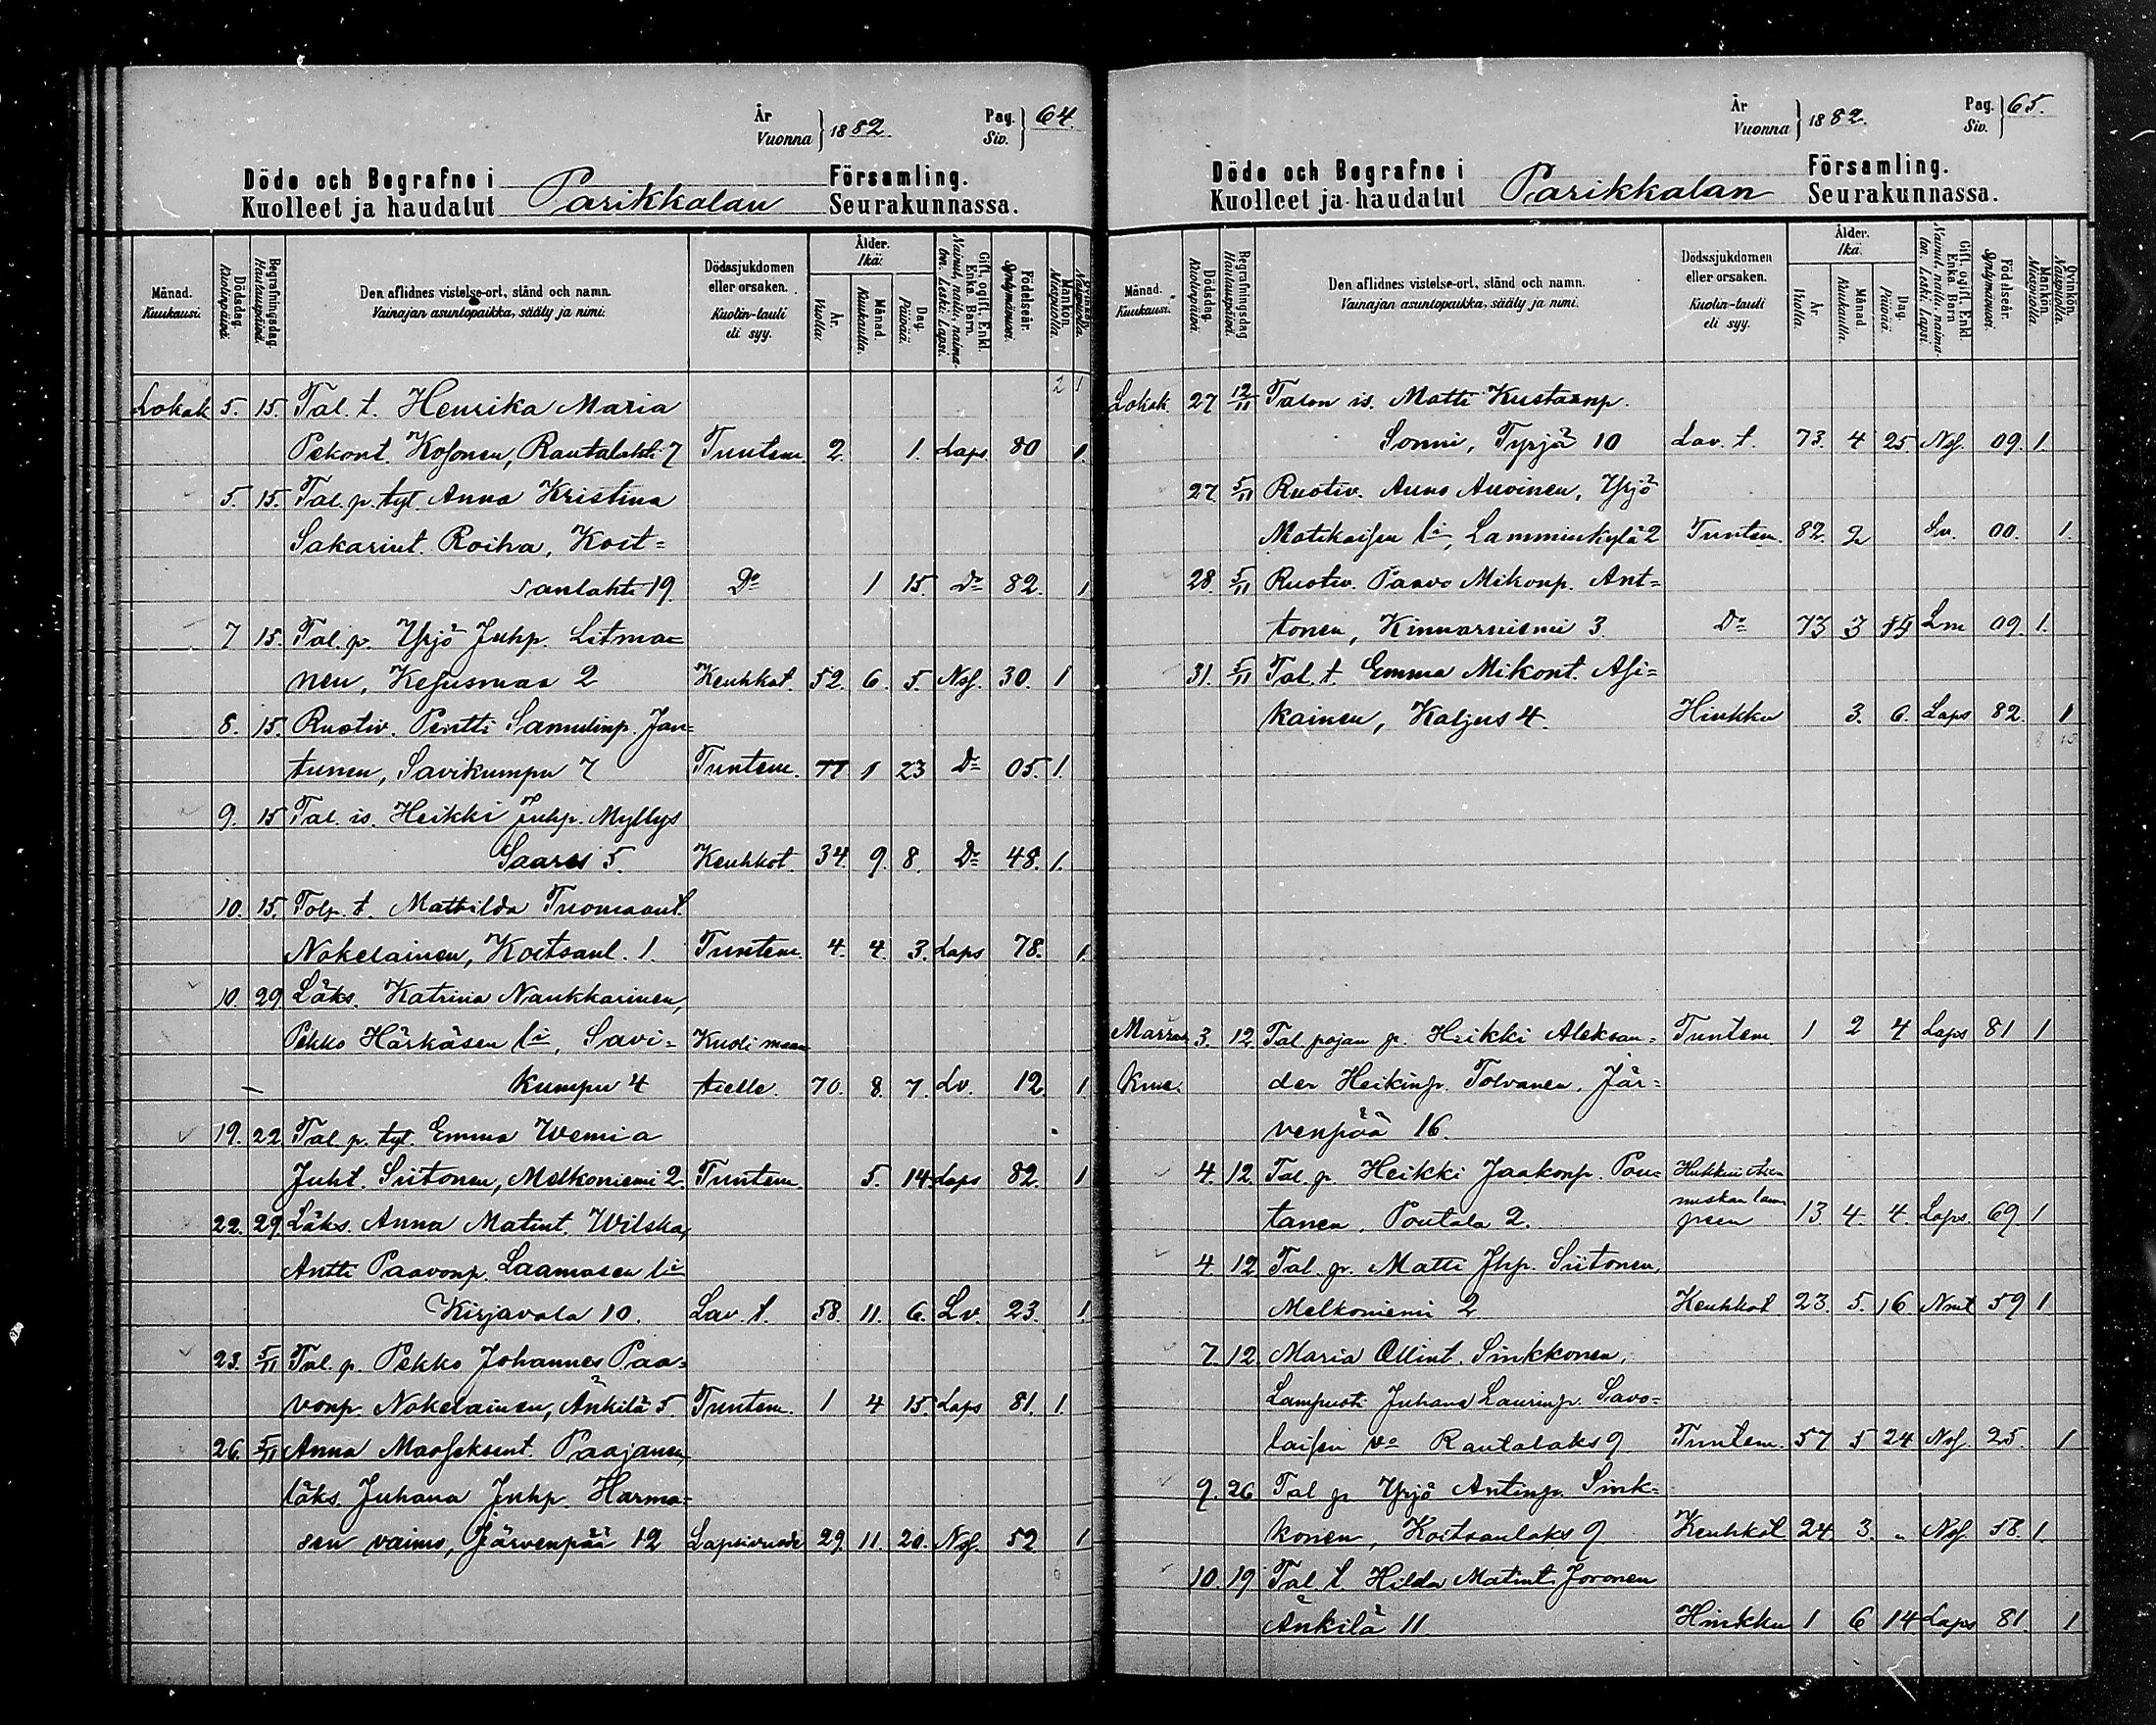 År
Vuonna } 1882.
Pag.
Siv. } 64.
Döde och Begrafne i Parikkalan Församling.
Kuolleet ja haudatut Seurakunnassa.
Månad. Kuukausi.
Dödsdag. Kuolinpäivä.
Begrafningsdag. Hautauspäivä.
Den aflidnes vistelse-ort, stånd och namn.
Vainajan asuntopaikka, sääty ja nimi.
Dödssjukdomen eller orsaken.
Kuolin-tauti eli syy.
Ålder. Ikä.
År. Vuotta.
Månad. Kuukautta.
Dag. Päivää.
Gift, ogift, Enkl. Enka. Barn.
Nainut, naitu, naimaton. Leski. Lapsi.
Födelseår. Syntymävuosi.
Mankön. Miespuolia.
Qvinkön. Naispuolia.
2 1
Lokak 5. 15. Tal. t. Henrika Maria
Pekont. Kosonen, Rautalahti 7 Tuntem. 2. 1. Laps 80 1.
5. 15. Tal. p. tyt. Anna Kristina
Sakarint. Roiha, Koit=
sanlahti 19. Do 1 15. Do 82. 1
7 15. Tal. p. Yrjö Juhp. Litma=
nen, Kesusmaa 2 Keuhkot. 52. 6. 5. Nsf. 30. 1
8. 15. Ruotiv. Pentti Samulinp. Jan=
tunen, Savikumpu 7 Tuntem. 77 1 23 Do 05. 1.
9. 15 Tal. is. Heikki Juhp. Myllys
Saares 5. Keuhkot. 34. 9. 8. Do 48. 1.
10. 15. Talp. t. Mathilda Tuomaant.
Nokelainen, Koitsanl. 1. Tuntem. 4. 4. 3. Laps 78. 1
10. 29 Läks. Katrina Naukkarinen,
Pekko Härkäsen li, Savi= Kuoli maan
kumpu 4 tielle. 70. 8. 7. Lv. 12 1
19. 22. Tal. p. tyt. Emma Wemia
Juht. Siitonen, Melkoniemi 2. Tuntem. 5. 14 Laps 82. 1
22. 29. Läks. Anna Matint. Wilska,
Antti Paavonp. Laamasen li
Kirjavala 10. Lav. t. 58. 11. 6. Lv. 23. 1.
23. 5/11 Tal. p. Pekko Johannes Paa=
vonp. Nokelainen, Änkilä 5. Tuntem. 1 4 15. Laps 81. 1.
26. 5/11 Anna Paajanen,
läks. Juhana Juhp. Harma=
sen vaimo, Järvenpää 12 29. 11. 20. Nsf. 52 1
6
År
Vuonna } 1882.
Pag.
Siv. } 65.
Döde och Begrafne i Parikkalan Församling.
Kuolleet ja haudatut Seurakunnassa.
Månad. Kuukausi.
Dödsdag. Kuolinpäivä.
Begrafningsdag. Hautauspäivä.
Den aflidnes vistelse-ort, stånd och namn.
Vainajan asuntopaikka, sääty ja nimi.
Dödssjukdomen eller orsaken.
Kuolin-tauti eli syy.
Ålder. Ikä.
År. Vuotta.
Månad. Kuukautta.
Dag. Päivää.
Gift, ogift, Enkl. Enka. Barn
Nainut, naitu, naimaton. Leski. Lapsi.
Födelseår. Syntymävuosi.
Mankön. Miespuolia.
Qvinkön. Naispuolia.
Lokak. 27 12/11 Talon is. Matti Kustaanp.
Sonni, Tyrjä 10 Lav. t. 73. 4 25. Nsf. 09. 1.
27. 5/11 Ruotiv. Auvinen, Yrjö
Matikaisen li, Lamminkylä 2 Tuntem. 82. 2 Lv. 00. 1.
28. 5/11 Ruotiv. Paavo Mikonp. Ant=
tonen, Kinnarniemi 3. Do 73 3 Lm 09. 1.
31. 5/11 Tal. t. Emma Mikont. Asi=
kainen, Kaljus 4. Hinkku 3. 6. Laps 82. 1
Marras 3. 12. Tal. pojan p. Heikki Aleksan= Tuntem. 1 2 4 Laps 81 1
kuu. der Heikinp. Tolvanen, Jär=
venpää 16.
4. 12. Tal. p. Heikki Jaakonp. Pou=
tanen, Poutala 2. 13. 4. 4. Laps. 69. 1
4. 12 Tal. p. Matti Jhp. Siitonen,
Melkoniemi 2. Keuhkot 23. 5. 16 Nmt 59 1
7. 12 Maria Ollint. Sinkkonen,
Lampuoti Juhana Laurinp. Savo=
laisen vo Rautalaks 9. Tuntem. 57 5 24 Nsf. 25. 1
9. 26 Tal p Yrjö Antinp. Sink=
konen, Koitsanlaks 9. Keuhkot. 24 3. „ Nsf. 58. 1.
10. 19 Tal. t. Hilda Matint. Joronen
Änkilä 11. Hinkku 1 6 14 Laps 81. 1